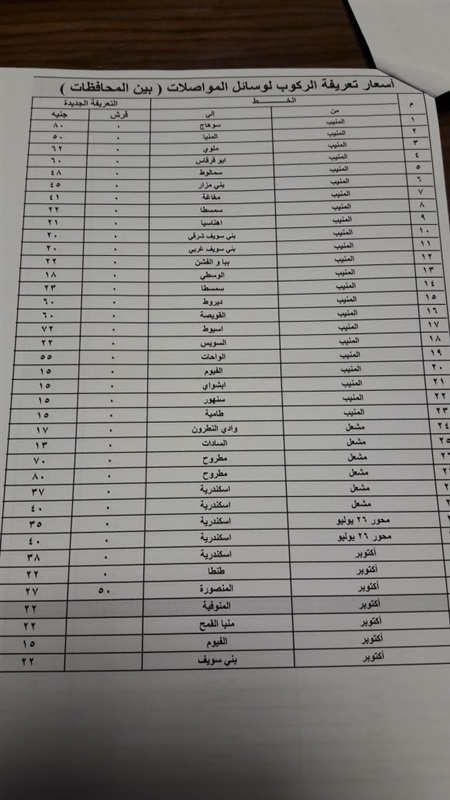 أسعار تعريفة الركوب لوسائل المواصلات ( بين المحافظات )
م الخـــط التعريفة الجديدة
من إلي قرش جنيه
١ المنيب سوهاج ٠ ٨٠
٢ المنيب المنيا ٠ ٥٠
٣ المنيب ملوي ٠ ٦٢
٤ المنيب ابو قرقاس ٠ ٦٠
٥ المنيب سمالوط ٠ ٤٨
٦ المنيب بني مزار ٠ ٤٥
٧ المنيب مغاغة ٠ ٤١
٨ المنيب سمسطا ٠ ٢٢
٩ المنيب اهناسيا ٠ ٢١
١٠ المنيب بني سويف شرقي ٠ ٢٠
١١ المنيب بني سويف غربي ٠ ٢٠
١٢ المنيب ببا و الفشن ٠ ٢٢
١٣ المنيب الوسطي ٠ ١٨
١٤ المنيب سمسطا ٠ ٢٣
١٥ المنيب ديروط ٠ ٦٠
١٦ المنيب القوصية ٠ ٦٠
١٧ المنيب اسيوط ٠ ٧٢
١٨ المنيب السويس ٠ ٢٢
١٩ المنيب الواحات ٠ ٥٥
٢٠ المنيب الفيوم ٠ ١٥
٢١ المنيب ابشواي ٠ ١٥
٢٢ المنيب سنهور ٠ ١٥
٢٣ المنيب طامية ٠ ١٥
٢٤ مشعل وادي النطرون ٠ ١٧
مشعل السادات ٠ ١٣
مشعل مطروح ٠ ٧٠
مشعل مطروح ٠ ٨٠
مشعل اسكندرية ٠ ٣٧
مشعل اسكندرية ٠ ٤٠
محور ٢٦ يوليو اسكندرية ٠ ٣٥
محور ٢٦ يوليو اسكندرية ٠ ٤٠
أكتوبر اسكندرية ٠ ٣٨
أكتوبر طنطا ٠ ٢٢
أكتوبر المنصورة ٥٠ ٢٧
أكتوبر المنوفية ٢٢
أكتوبر منيا القمح ٢٢
أكتوبر الفيوم ١٥
أكتوبر بني سويف ٢٢